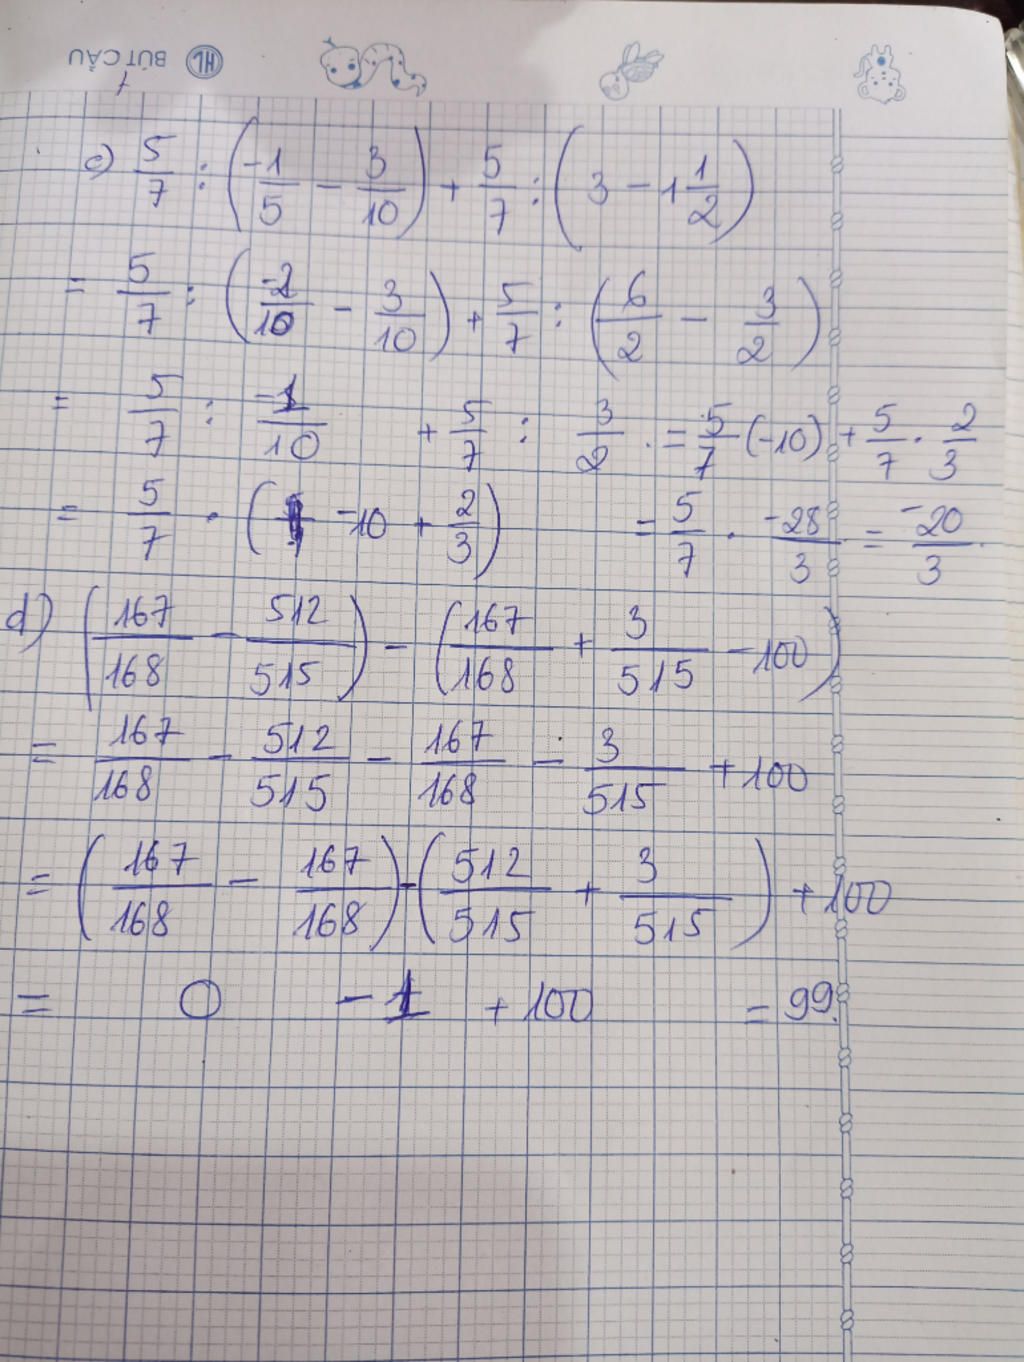 BÚT CẦU HL
c) 5/7 : (-1/5 - 3/10) + 5/7 : (3 - 1 1/2)
= 5/7 : (-2/10 - 3/10) + 5/7 : (6/2 - 3/2)
= 5/7 : -1/10 + 5/7 : 3/2 . = 5/7 (-10) + 5/7 . 2/3
= 5/7 . (-10 + 2/3) = 5/7 . -28/3 = -20/3
d) (167/168 - 512/515) - (167/168 + 3/515 - 100)
= 167/168 - 512/515 - 167/168 - 3/515 + 100
= (167/168 - 167/168) - (512/515 + 3/515) + 100
= 0 - 1 + 100 = 99.